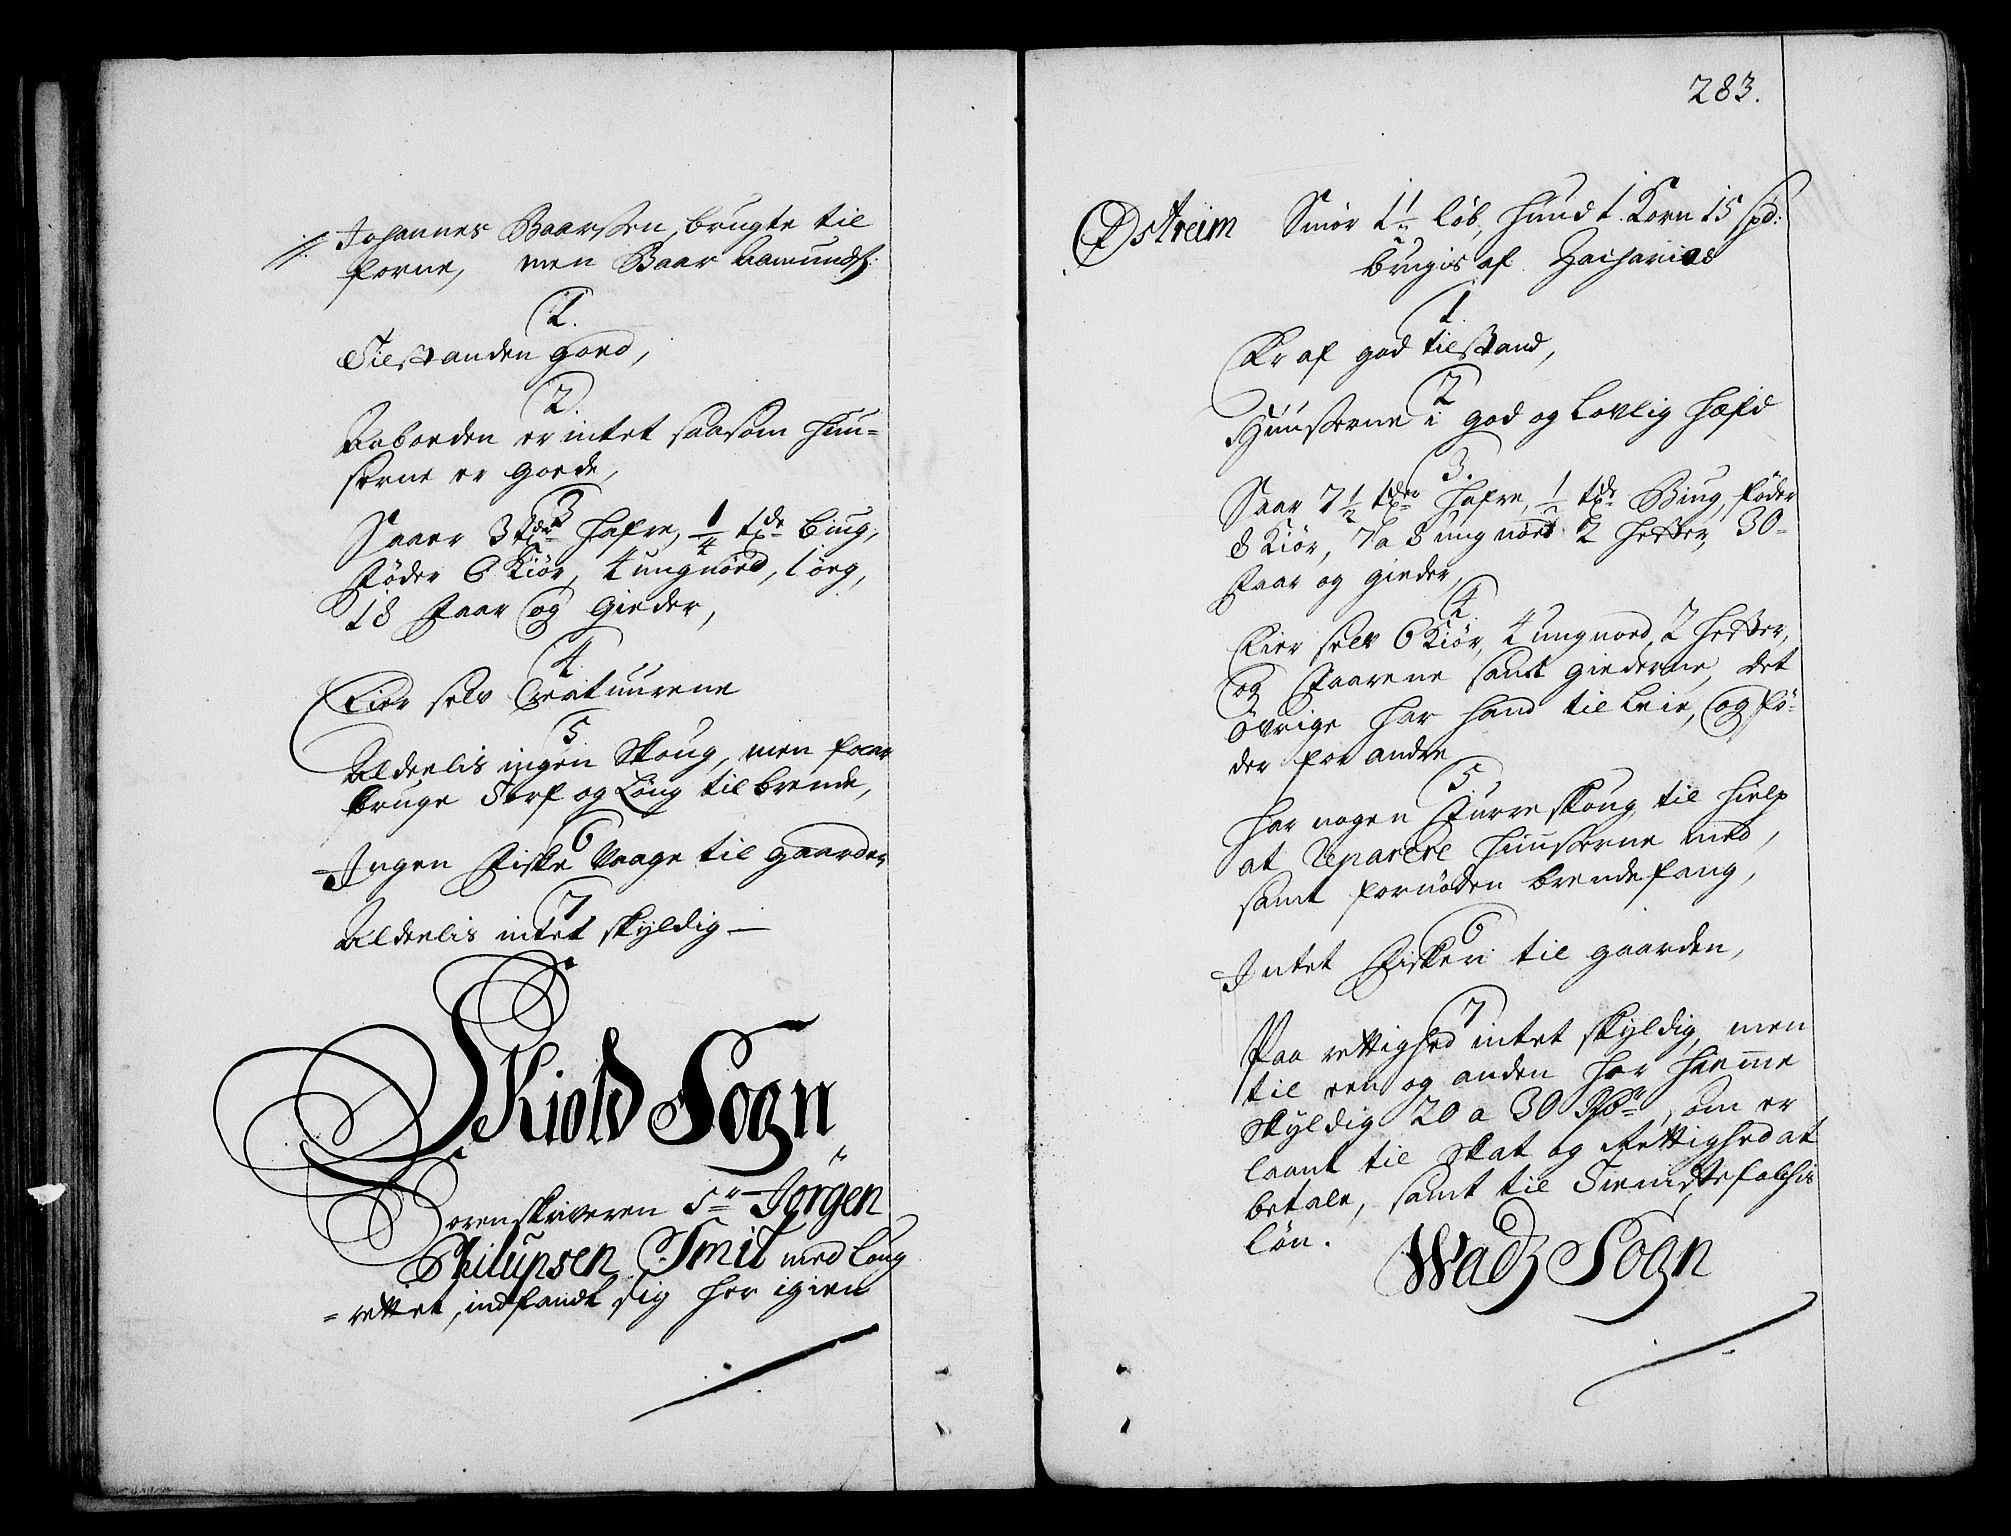 Johannes Baarssen, brugte til
forne, men Baar Aamunds:
1.
Tilstanden goed,
2.
Aaboeden er intet saasom huu-
serne er goede,
3
Saaer 3 tdr hafre, 1/4 tde biug,
føder 6 Kiør, 4 ungnöed, 1 öeg,
18 Faar og Gieder,
4.
Eier selv Creatuurene
5
Aldeelis ingen Skoug, men faar
bruge Torf og Löng til brende,
6
Ingen Fiske Vaage til gaarden
7
Aldeelis intet skyldig —
Skiold Sogn
Sorenskriveren Sr Jörgen
Philupsen Smit med Laug
= rettet, indfandt sig her igien
283.
Østreim Smör 1 1/2 löb, huud 1. Korn 15 spd:
brugis af Zacharias
1.
Er af god tilstand,
2
Huuserne i god og lovlig hæfd
3.
Saar 7 1/2 tder hafre, 1/2 tde Biug, föder
8 Kiör, 7 a 8 ung nöed 2 hester, 30-
Faar og gieder,
4
Eier selv 6 Kiör, 4 ungnoed, 2 hester,
og Faarene samt giederne, det
övrige har hand til Leie, og fö-
der for andre
5.
har nogen Furre skoug, til hielp
at Reparere huuserne med,
samt fornöden brendefang,
6
Intet Fiskeri til gaarden,
7
Paa rettighed intet skyldig, men
til een og anden her hiemme
skyldig 20 a 30 Rdr, som er
laant til skat og Rettighed at
betale, samt til Tienistefolchis
lön.
Wadz Sogn